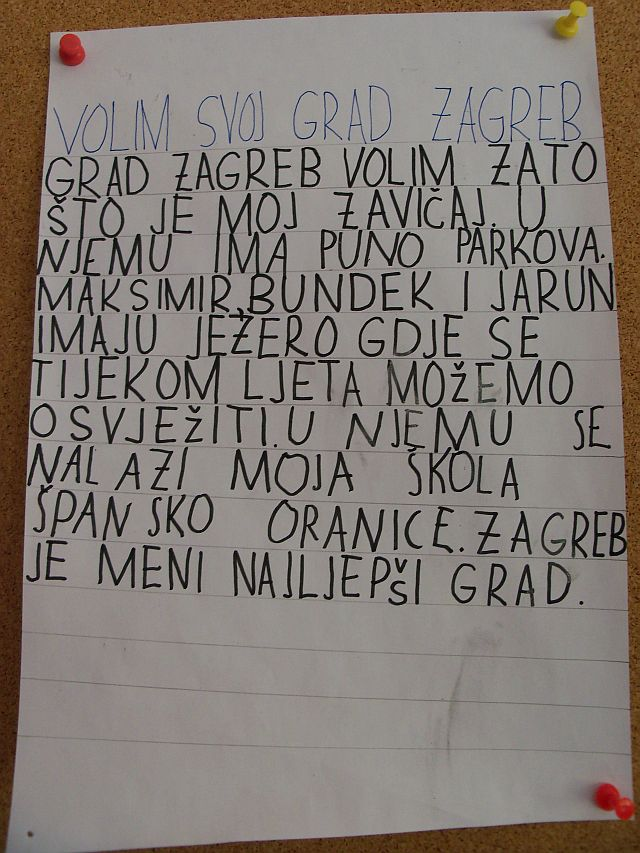 VOLIM SVOJ GRAD ZAGREB
GRAD ZAGREB VOLIM ZATO
ŠTO JE MOJ ZAVIČAJ. U
NJEMU IMA PUNO PARKOVA.
MAKSIMIR, BUNDEK I JARUN
IMAJU JEZERO GDJE SE
TIJEKOM LJETA MOŽEMO
OSVJEŽITI. U NJEMU SE
NALAZI MOJA ŠKOLA
ŠPANSKO ORANICE. ZAGREB
JE MENI NAJLJEPŠI GRAD.